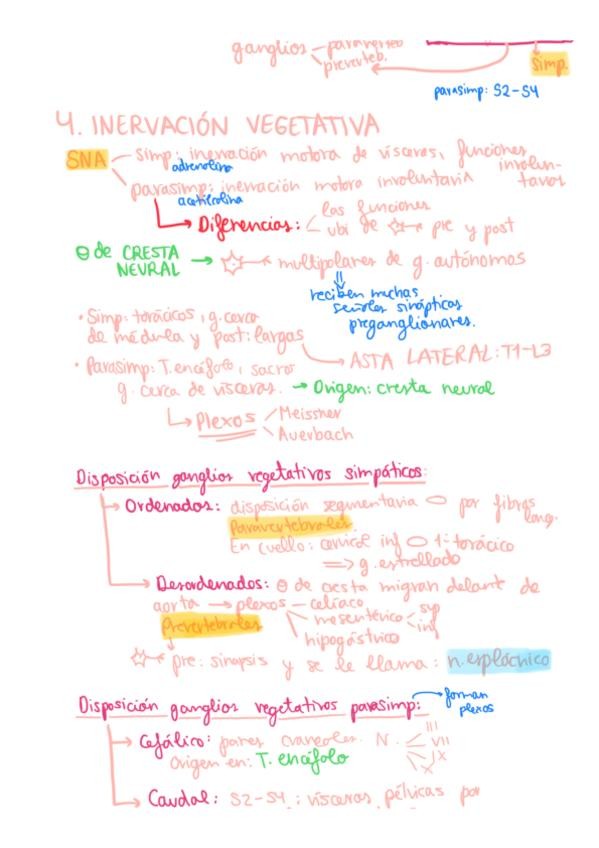 ganglios - paraverteb
prevertb.
simp.
parasimp: S2-S4
4. INERVACIÓN VEGETATIVA
SNA - simp: inervación motora de vísceras, funciones involun-
adrenalina
tarias
parasimp: inervación motora involuntaria
acetilcolina
Diferencias: las funciones
ubi de pre y post
de CRESTA NEURAL → multipolares de g. autónomos
reciben muchas
señales sinápticas
preganglionares.
• Simp: torácicos, g. cerca
de médula y post: largas
ASTA LATERAL: T1-L3
• Parasimp: T. encéfalo, sacro
g. cerca de vísceras. → Origen: cresta neural
Plexos Meissner
Auerbach
Disposición ganglios vegetativos simpáticos:
Ordenados: disposición segmentaria por fibras
long.
Paravertebrales.
En cuello: cervical inf 1º torácico
⇒ g. estrellado
Desordenados: de cresta migran delante de
aorta → plexos - celíaco
mesentérico < sup
inf
hipogástrico
Prevertebrales
pre: sinapsis y se le llama: n. esplácnico
Disposición ganglios vegetativos parasimp: → forman
plexos
Cefálico: pares craneales. N. III
VII
IX
X
Origen en: T. encéfalo
Caudal: S2-S4: vísceras pélvicas por